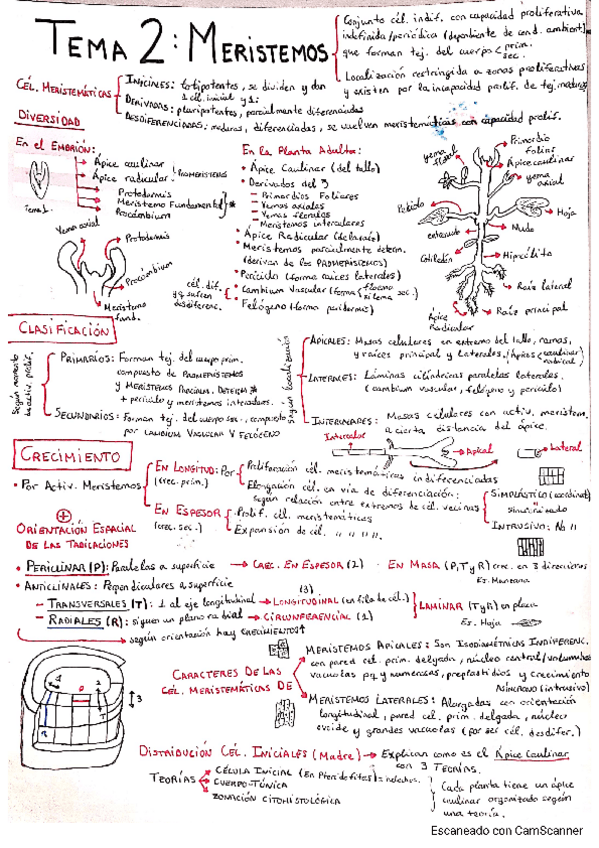 TEMA 2: MERISTEMOS
Conjunto cél. indif. con capacidad proliferativa
indefinida/periódica (dependiente de cond. ambient.)
que forman tej. del cuerpo prim.
sec.
Localización restringida a zonas proliferativas
y existen por la incapacidad prolif. de tej. maduros
CÉL. MERISTEMÁTICAS
INICIALES: totipotentes, se dividen y dan
1 cél. inicial y 1:
DERIVADAS: pluripotentes, parcialmente diferenciadas
DESDIFERENCIADAS: maduras, diferenciadas, se vuelven meristemáticas con capacidad prolif.
DIVERSIDAD
En el EMBRIÓN:
Ápice caulinar
Ápice radicular
PROMERISTEMOS
Protodermis
Meristemo Fundamental
Procámbium
Tema 1
Yema axial
Protodermis
Procámbium
Meristemo
fund.
En la Planta Adulta:
• Ápice Caulinar (del tallo)
• Derivados del 3
– Primordios Foliares
– Yemas axiales
– Yemas florales
– Meristemos intercalares
• Ápice Radicular (de la raíz)
• Meristemos parcialmente determ.
(derivan de los PROMERISTEMOS)
• Periciclo (forma raíces laterales)
cél. dif.
desdiferenc.
• Cambium Vascular (forma floema
xilema sec.)
• Felógeno (forma peridermis)
yema
floral
Primordio
foliar
Ápice caulinar
yema
axial
Hoja
entrenudo
Nudo
Cotiledón
Hipocótilo
Raíz lateral
Raíz principal
Ápice
Radicular
CLASIFICACIÓN
Según momento
de activ. prolif.
PRIMARIOS: Forman tej. del cuerpo prim.
compuesto de PROMERISTEMOS
y MERISTEMOS PARCIALM. DETERM *
+ periciclo y meristemos intercalares
SECUNDARIOS: forman tej. del cuerpo sec., compuesto
por CAMBIUM VASCULAR Y FELÓGENO
según localización
APICALES: Masas celulares en extremo del tallo, ramas,
y raíces principal y laterales. (Ápices caulinar
radical
LATERALES: Láminas cilíndricas paralelas laterales.
(cambium vascular, felógeno y periciclo)
INTERCALARES: Masas celulares con activ. meristem.
a cierta distancia del ápice.
Intercalar
Apical
Lateral
CRECIMIENTO
• Por Activ. Meristemos
EN LONGITUD: Por
(crec. prim.)
Proliferación cél. meristemáticas indiferenciadas
Elongación cél. en vía de diferenciación:
según relación entre extremos de cél. vecinas
SIMPLÁSTICO (coordinado)
INTRUSIVO: No "
EN ESPESOR
(crec. sec.)
Prolif. cél. meristemáticas
Expansión de cél. " " " "
+
ORIENTACIÓN ESPACIAL
DE LAS TABICACIONES
• PERICLINAR (P): Paralelas a superficie → CREC. EN ESPESOR (2) · EN MASA (P,T y R) crec. en 3 direcciones
Ej. Manzana
• ANTICLINALES: Perpendiculares a superficie
(3)
– TRANSVERSALES (T): ⊥ al eje longitudinal → LONGITUDINAL (en fila de cél.)
– RADIALES (R): siguen un plano radial → CIRCUNFERENCIAL (1)
LAMINAR (T y R) en placa
Ej. Hoja
según orientación hay CRECIMIENTOS↑
CARACTERES DE LAS
CÉL. MERISTEMÁTICAS DE
MERISTEMOS APICALES: Son ISODIAMÉTRICAS INDIFERENC.
con pared cél. prim. delgada, núcleo central/voluminoso
vacuolas pq y numerosas, proplastidios y crecimiento
(intrusivo)
MERISTEMOS LATERALES: Alargadas con orientación
longitudinal, pared cél. prim. delgada, núcleo
ovoide y grandes vacuolas (por ser cél. desdifer.)
3
DISTRIBUCIÓN CÉL. INICIALES (Madre) → Explican como es el Ápice Caulinar
con 3 TEORÍAS.
TEORÍAS
CÉLULA INICIAL (En Pteridofitas) = helechos.
CUERPO-TÚNICA
ZONACIÓN CITOHISTOLÓGICA
Cada planta tiene un ápice
caulinar organizado según
una teoría.
Escaneado con CamScanner